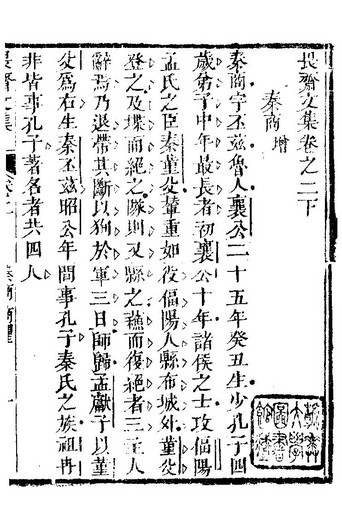 畏齋文集卷之二下
秦商增
秦商字丕茲魯人襄公二十五年癸丑生少孔子四
歲弟子中年最長者初襄公十年諸侯之士攻偪陽
孟氏之臣秦堇父輦重如役偪陽人縣布城外堇父
登之及堞而絕之隊則又縣之蘇而復絕者三主人
辭焉乃退帶其斷以狥於軍三日師歸孟獻子以堇
父爲右生秦丕茲昭公年間事孔子秦氏之族祖冉
非皆事孔子著名者共四人